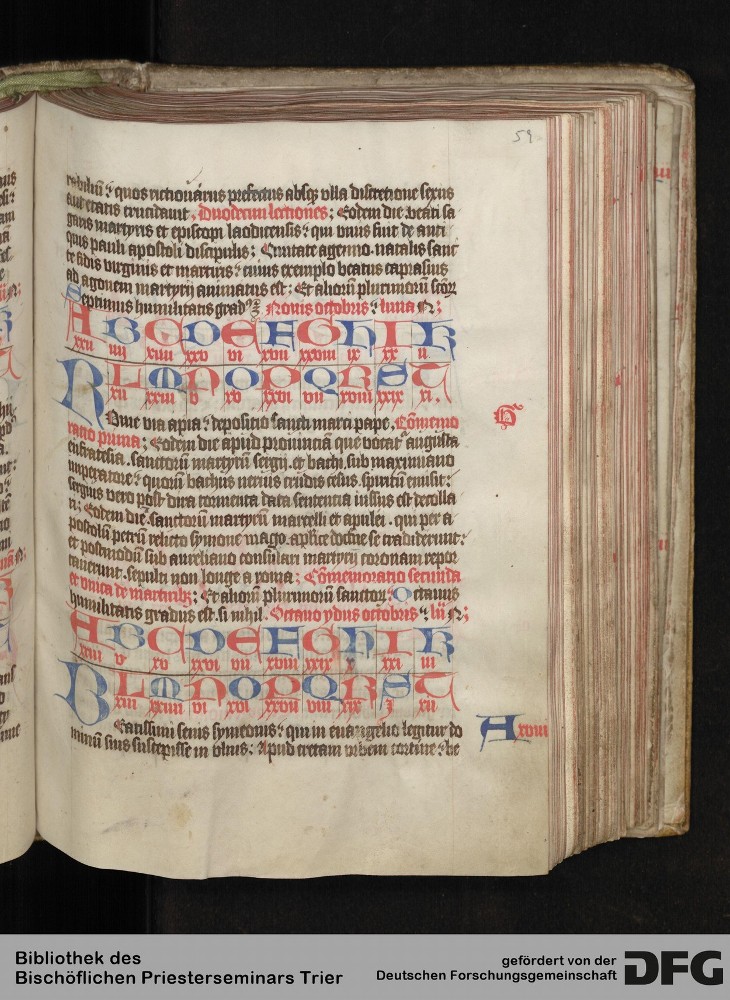 59
rabiliu͂ : quos rictiouarus prefectus absq; vlla discretione sexus
aut etatis trucidauit, Duodecim lectiones; Eodem die. beati sa
garis martyris et episcopi laodicensis: qui vnus fuit de anti
quis pauli apostoli discipulis: Ciuitate agenno. natalis sanc
te fidis virginis et martiris: cuius exemplo beatus caprasius
ad agonem martyrij animatus est: Et alioru͂ plurimoru͂
Septimus humilitatis grad⁹ Nonis octobris: luna
A B C D E F G H I K
xxii iiii xiiii xxv vi xvii xxviii ix xx ii
L M N O P Q R S T
xii xxiii v xv xxvi vii xviii xxix xi.
Rome via apia: depositio sancti marci pape, Co͂memo
ratio prima; Eodem die apud prouincia͂ que vocat͛ augusta
eufratesia. sanctoru͂ martyru͂ sergij. et bachi. sub maximiano
imperatore: quoru͂ bachus neruis crudis cesus. spiritu͂ emisit:
sergius vero post dira tormenta data sententia iussus est decolla
ri; Eodem die. sanctoru͂ martyru͂ marcelli et apulei. qui per a
postolu͂ petru͂ relicto symone mago. ap̄lice doctⁱne se tradiderunt:
et postmodu͂ sub aureliano consulari martyrij coronam repor
tauerunt. sepulti non longe a roma; Co͂memoratio secunda
et vnica de martirib;: Et alioru͂ plurimoru͂ sanctor͛: Octauus
humilitatis gradus est. si nihil. Octauo ydus octobris: lu
A B C D E F G H I K
xxiii v xv xxvi vii xviii xxix x xxi iii
L M N O P Q R S T
xiii xxiiii vi xvi xxvii viii xix xii
Beatissimi senis symeonis: qui in euangelio legitur do
minu͂ suis suscepisse in vlnis: Apud cretam vrbem cortine: be
G
A xviii
Bibliothek des
Bischöflichen Priesterseminars Trier
gefördert von der
Deutschen Forschungsgemeinschaft
DFG